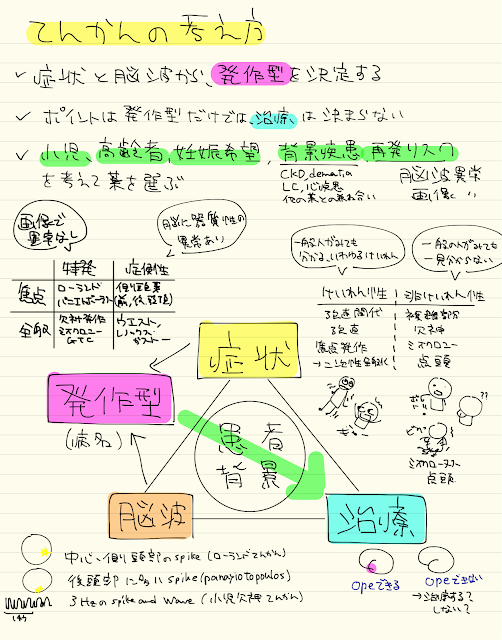 てんかんの考え方
✓ 症状と脳波から、発作型を決定する
✓ ポイントは発作型だけでは治療は決まらない
✓ 小児、高齢者、妊娠希望、背景疾患、再発リスク
を考えて薬を選ぶ
CKD, dementia
LC, 心疾患
他の薬との兼ね合い
脳波異常
画像
画像で
異常なし
脳に器質性の
異常あり
特発 症候性
焦点 ローランド
パナエトポーラス 側頭葉
(前, 後, 頭頂)
全般 欠神発作
ミオクロニー
GTC ウエスト,
レノックス
ガストー
一般人がみても
分かる、いわゆるけいれん
一般の人がみても
一見分からない
けいれん性 非けいれん性
強直間代 複雑部分
強直 欠神
焦点発作 ミオクロニー
→二次性全般化 点頭
症状
発作型
(病名)
患者
背景
脳波
治療
??
ミオクロニー
点頭
中心、側頭部のspike (ローランドてんかん)
後頭部に多いspike (panayiotopoulos)
3Hzのspike and wave (小児欠神てんかん)
1秒
opeできる
opeできない
→治療する?
しない?